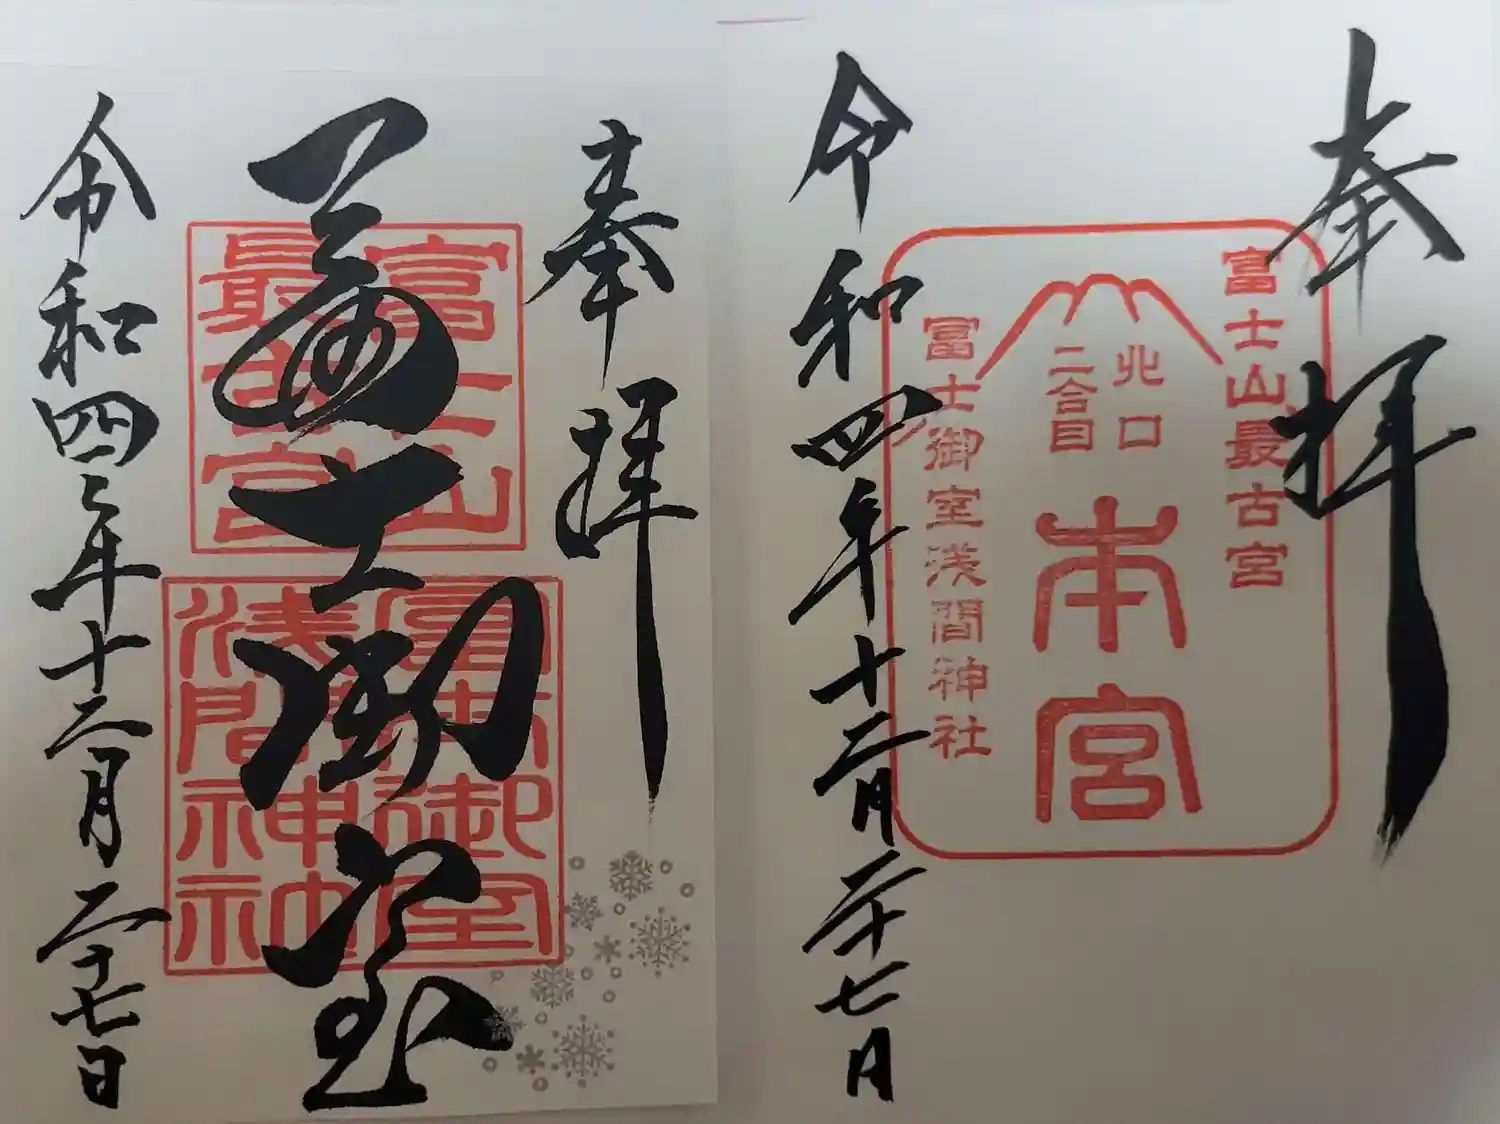 奉拝
富士山最古宮
北口
二合目
本宮
冨士御室浅間神社
令和四年十二月二十七日
奉拝
富士山
最古宮
冨士御室
浅間神社
冨士御室
令和四年十二月二十七日